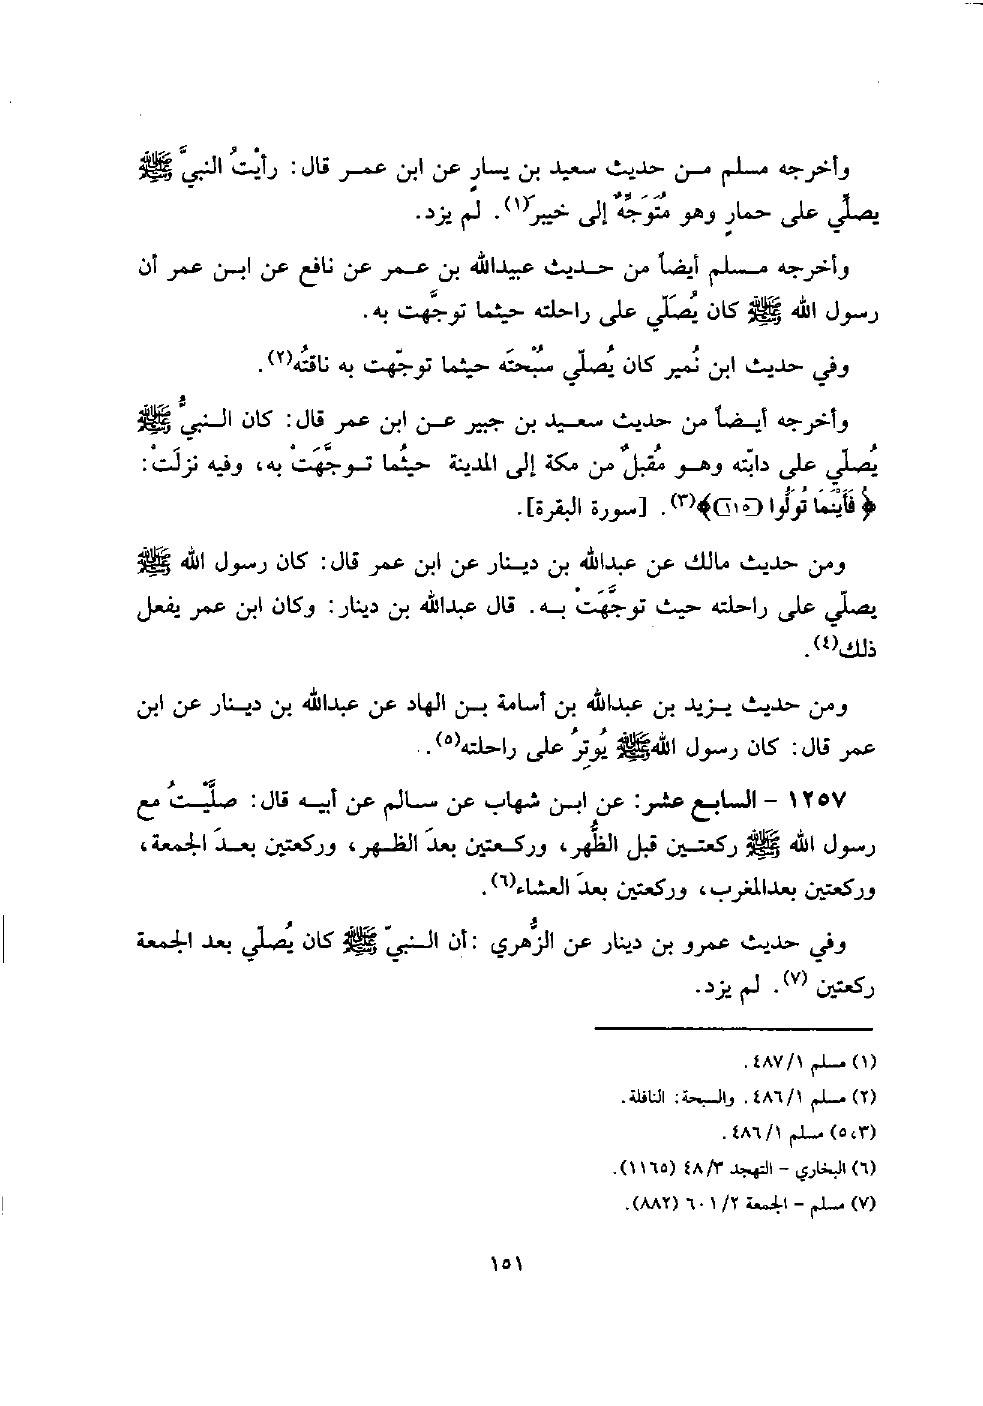 وأخرجه مسلم من حديث سعيد بن يسارٍ عن ابن عمر قال: رأيْتُ النبيَّ ﷺ
يصلّي على حمارٍ وهو مُتَوَجِّهٌ إلى خيبرَ(١). لم يزد.
وأخرجه مسلم أيضاً من حديث عبيدالله بن عمر عن نافع عن ابن عمر أن
رسول الله ﷺ كان يُصَلّي على راحلته حيثما توجَّهت به.
وفي حديث ابن نُمير كان يُصلّي سُبْحتَه حيثما توجّهت به ناقتُه(٢).
وأخرجه أيضاً من حديث سعيد بن جبير عن ابن عمر قال: كان النبيُّ ﷺ
يُصلّي على دابّته وهو مُقبلٌ من مكة إلى المدينة حيثُما توجَّهَتْ به، وفيه نزلَتْ:
﴿ فَأَيْنَمَا تُوَلُّوا (١١٥)﴾(٣). [سورة البقرة].
ومن حديث مالك عن عبدالله بن دينار عن ابن عمر قال: كان رسول الله ﷺ
يصلّي على راحلته حيث توجَّهَتْ به. قال عبدالله بن دينار: وكان ابن عمر يفعل
ذلك(٤).
ومن حديث يزيد بن عبدالله بن أسامة بن الهاد عن عبدالله بن دينار عن ابن
عمر قال: كان رسول اللهﷺ يُوتِرُ على راحلته(٥).
١٢٥٧ - السابع عشر: عن ابن شهاب عن سالم عن أبيه قال: صلَّيْتُ مع
رسول الله ﷺ ركعتين قبل الظُّهر، وركعتين بعدَ الظهر، وركعتين بعدَ الجمعة،
وركعتين بعدالمغرب، وركعتين بعدَ العشاء(٦).
وفي حديث عمرو بن دينار عن الزُّهري :أن النبيّ ﷺ كان يُصلّي بعد الجمعة
ركعتين (٧). لم يزد.
(١) مسلم ١/ ٤٨٧.
(٢) مسلم ١/ ٤٨٦. والسبحة: النافلة.
(٣،٥) مسلم ١/ ٤٨٦.
(٦) البخاري - التهجد ٣/ ٤٨ (١١٦٥).
(٧) مسلم - الجمعة ٢/ ٦٠١ (٨٨٢).
١٥١